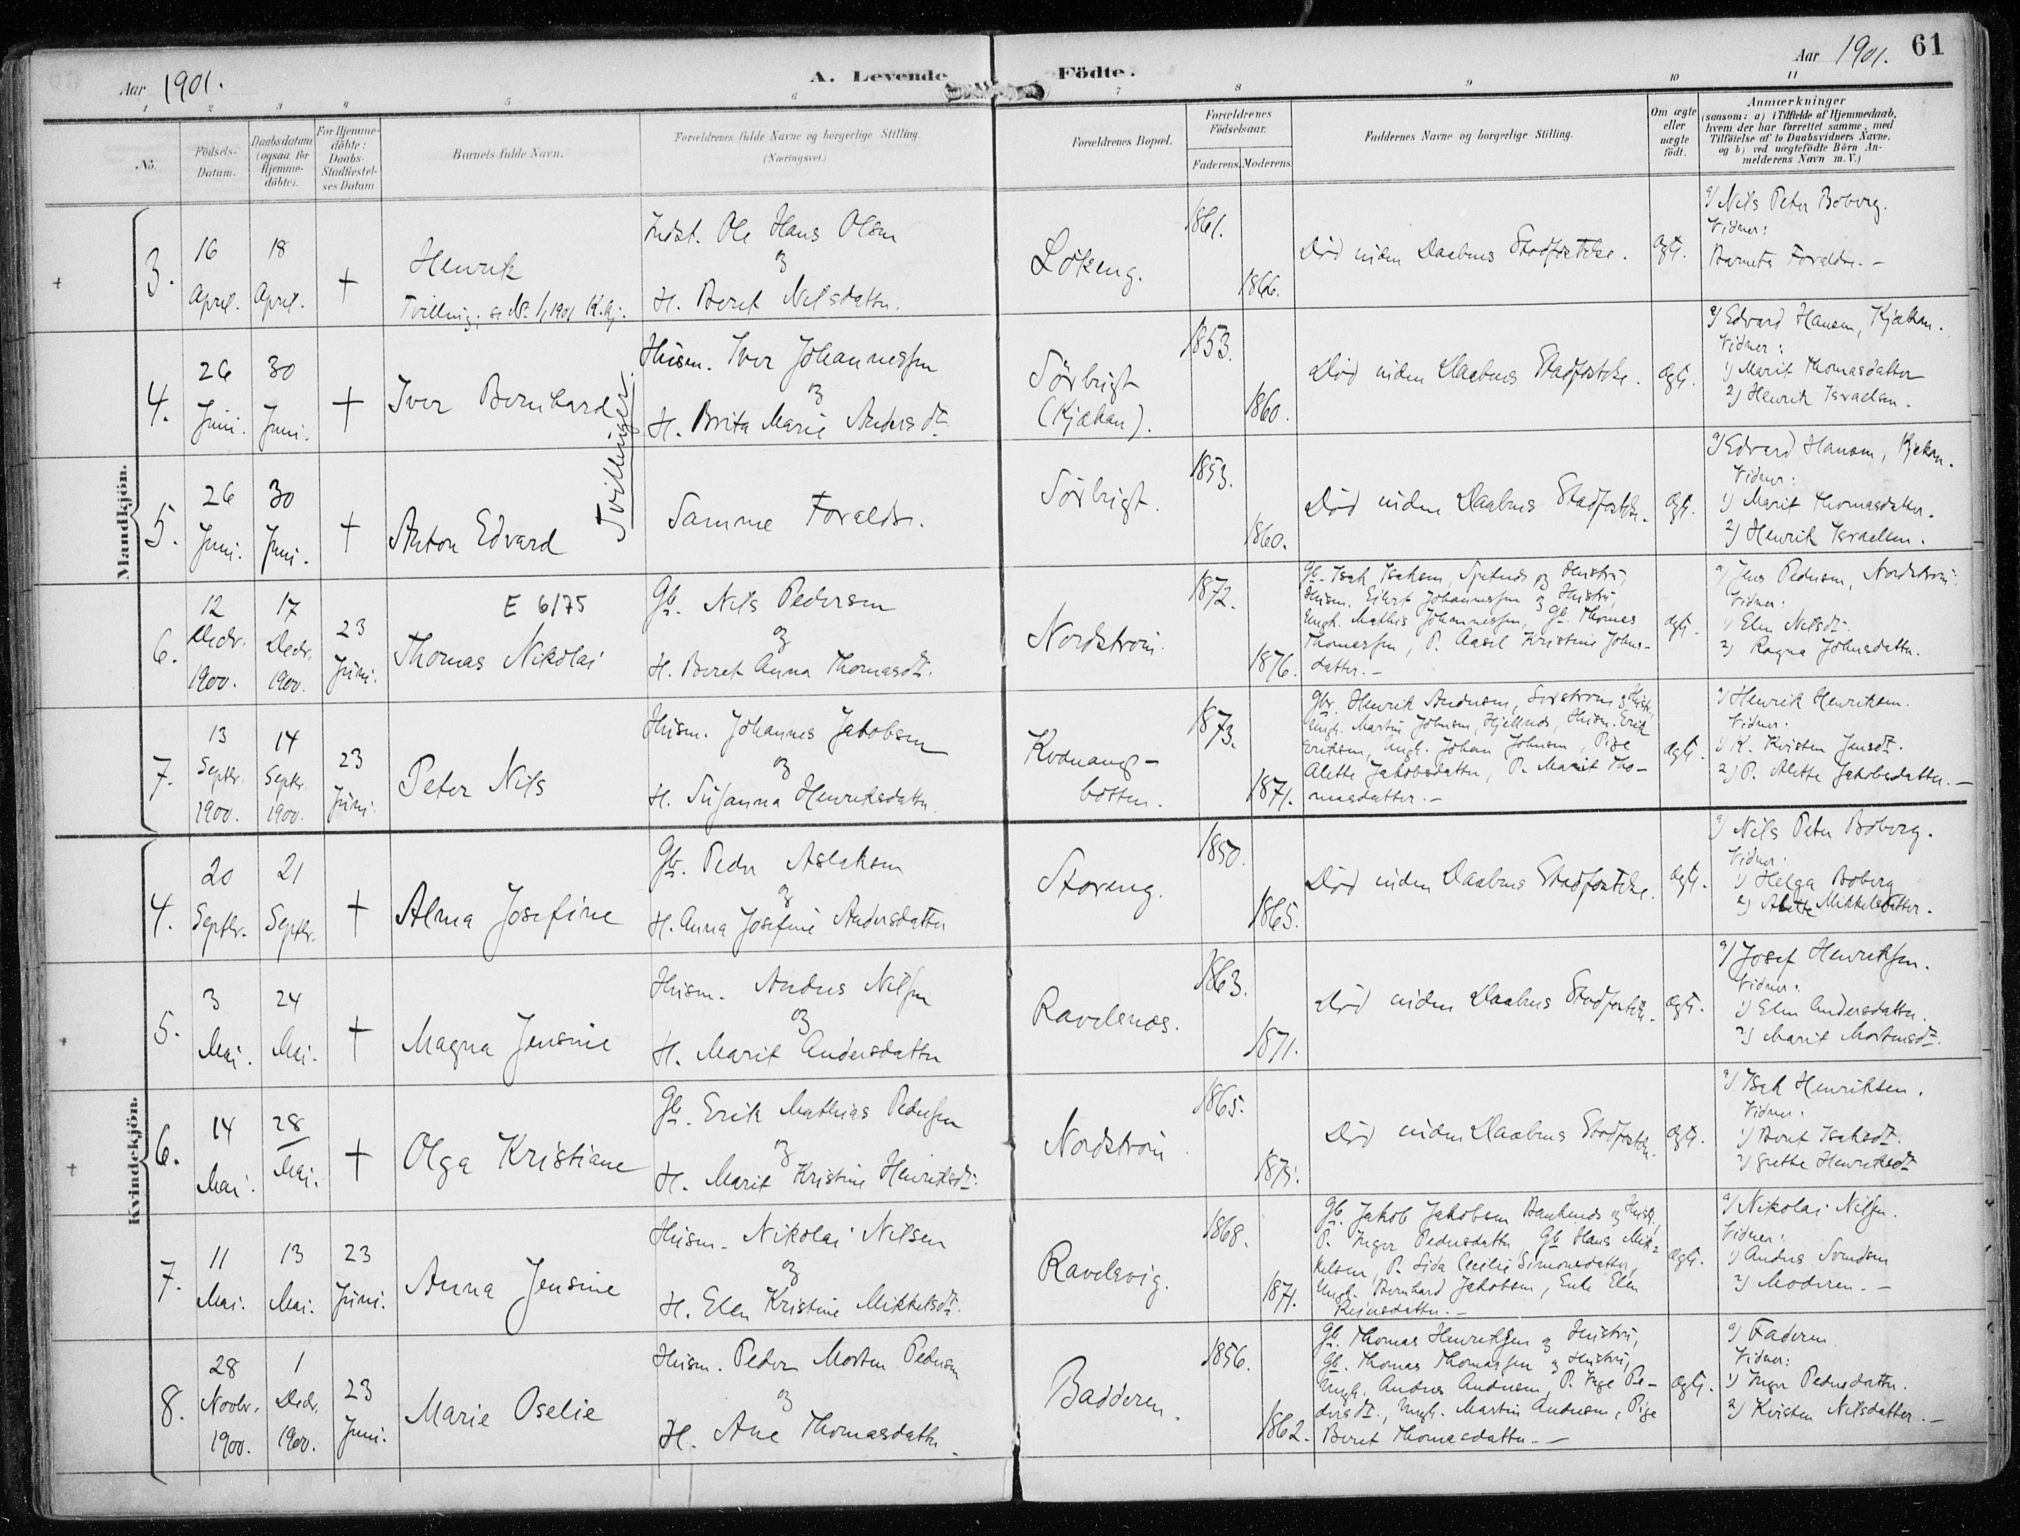 Aar 1901.
A. Levende Födte.
Aar 1901.
61
1 2 3 4 5 6 7 8 9 10 11
No.
Födsels-
Datum.
Daabsdatum
(ogsaa for
Hjemme-
döbte).
For Hjemme-
döbte:
Daabs-
Stadfæstel-
ses Datum
Barnets fulde Navn.
Forældrenes fulde Navne og borgerlige Stilling.
(Næringsvei.)
Forældrenes Bopæl.
Forældrenes
Födselsaar.
Faderens.
Moderens.
Faddernes Navne og borgerlige Stilling.
Om ægte
eller
uægte
födt.
Anmærkninger
(saasom: a) i Tilfælde af Hjemmedaab,
hvem der har forrettet samme, med
Tilföielse af to Daabsvidners Navne.
og b) ved uægtefödte Börn An-
melderens Navn m. V.)
Mandkjön.
3.
16
April.
18
April.
+
Henrik
Tvilling, se No. 1/1901 K.kj.
Indst. Ole Hans Olsen
og
H. Beret Nilsdatter.
Løkeng.
1861.
1866.
Død inden Daabens Stadfæstelse.
Ægte.
a) Nils Peter Boberg.
Vidner:
Barnets Forældre. -
4.
26
Juni.
30
Juni.
+
Iver Bernhard
Tvillinger.
Husm. Iver Johannessen
og
H. Brita Marie Andersdtr.
Sørbugt
(Kjækan).
1853.
1860.
Død inden Daabens Stadfæstelse.
Ægte.
a) Edvard Hansen, Kjækan.
Vidner:
1) Marit Thomasdatter
2) Henrik Israelsen.
5.
26
Juni.
30
Juni.
+
Anton Edvard
Samme Forældre.
Sørbugt.
1853.
1860.
Død inden Daabens Stadfæstelse.
Ægte.
a) Edvard Hansen, Kjækan.
Vidner:
1) Marit Thomasdatter.
2) Henrik Israelsen.
6.
12
Decbr.
1900.
17
Decbr.
1900.
23
Juni.
E 6/75
Thomas Nikolai
Gb. Nils Pedersen
og
H. Beret Anna Thomasdtr.
Nordstrøm.
1872.
1876.
Gb. Isak Isaksen, og Hustru,
Husm. Eilert Johannessen og Hustru,
Ungk. Mathis Johannessen, Gb. Thomas
Thomassen, P. Aasel Kristine Johns-
datter. -
Ægte.
a) Jens Pedersen, Nordstrøm.
Vidner:
1) Elen Nilsdtr.
2) Ragna Johnsdatter.
7.
13
Septbr.
1900.
14
Septbr.
1900.
23
Juni.
Peter Nils
Husm. Johannes Jakobsen
og
H. Susanna Henriksdatter.
Kvænangs-
botten.
1873.
1871.
Gbr. Henrik Andersen, Sørstrøm og Hustr,
Ungk. Martin Johnsen, Hjellnes, Husm. Erik
Eriksen, Ungk. Johan Johnsen, Pige
Alette Jakobsdatter, P. Marit Tho-
masdatter. -
Ægte.
a) Henrik Henriksen.
Vidner:
1) K. Kirsten Jensdtr.
2) P. Alette Jakobsdatter. -
Kvindekjön.
4.
20
Septbr.
21
Septbr.
+
Alma Josefine
Gb. Peder Aslaksen
og
H. Anna Josefine Andersdatter
Storeng.
1850.
1865.
Død inden Daabens Stadfæstelse.
Ægte.
a) Nils Peter Boberg.
Vidner:
1) Helga Boberg
2) Alette Mikkelsdatter.
5.
3
Mai.
24
Mai.
+
Magna Jensine
Husm. Anders Nilsen
og
H. Marit Andersdatter
Ravelsnæs.
1863.
1871.
Død inden Daabens Stadfæstelse.
Ægte.
a) Josef Henriksen.
Vidner:
1) Elen Andersdatter.
2) Marit Mortensdtr.
6.
14
Mai.
28
Mai.
+
Olga Kristiane
Gb. Erik Mathias Pedersen
og
H. Marit Kristine Henriksdtr.
Nordstrøm
1865.
1875.
Død inden Daabens Stadfæstelse.
Ægte.
a) Isak Henriksen.
Vidner:
1) Beret Isaksdtr.
2) Grethe Henriksdtr
7.
11
Mai.
13
Mai.
23
Juni.
Anna Jensine
Husm. Nikolai Nilsen
og
H. Elen Kristine Mikkelsdtr.
Ravelsvig.
1868.
1871.
Gb. Jakob Jakobsen og Hustr,
P. Inger Pedersdatter, Gb Hans Mik-
kelsen, P. Lida Cecilie Simonsdatter,
Ungk. Bernhard Jakobsen, Enke Elen
Reiersdatter. -
Ægte.
a) Nikolai Nilsen.
Vidner:
1) Anders Svendsen
2) Moderen. -
8.
28
Novbr.
1900.
1
Decbr.
1900.
23
Juni.
Marie Oselie
Husm. Peder Morten Pedersen
og
H. Ane Thomasdatter.
Badderen.
1856.
1862.
Gb. Thomas Henriksen og Hustru,
Gb. Thomas Thomassen og Hustru,
Ungk. Andreas Andersen, P. Inge Pe-
dersdtr., Ungk. Martin Andersen, Pige
Beret Thomasdatter. -
Ægte.
a) Faderen
Vidner:
1) Inger Pedersdatter.
2) Kirsten Nilsdatter. -